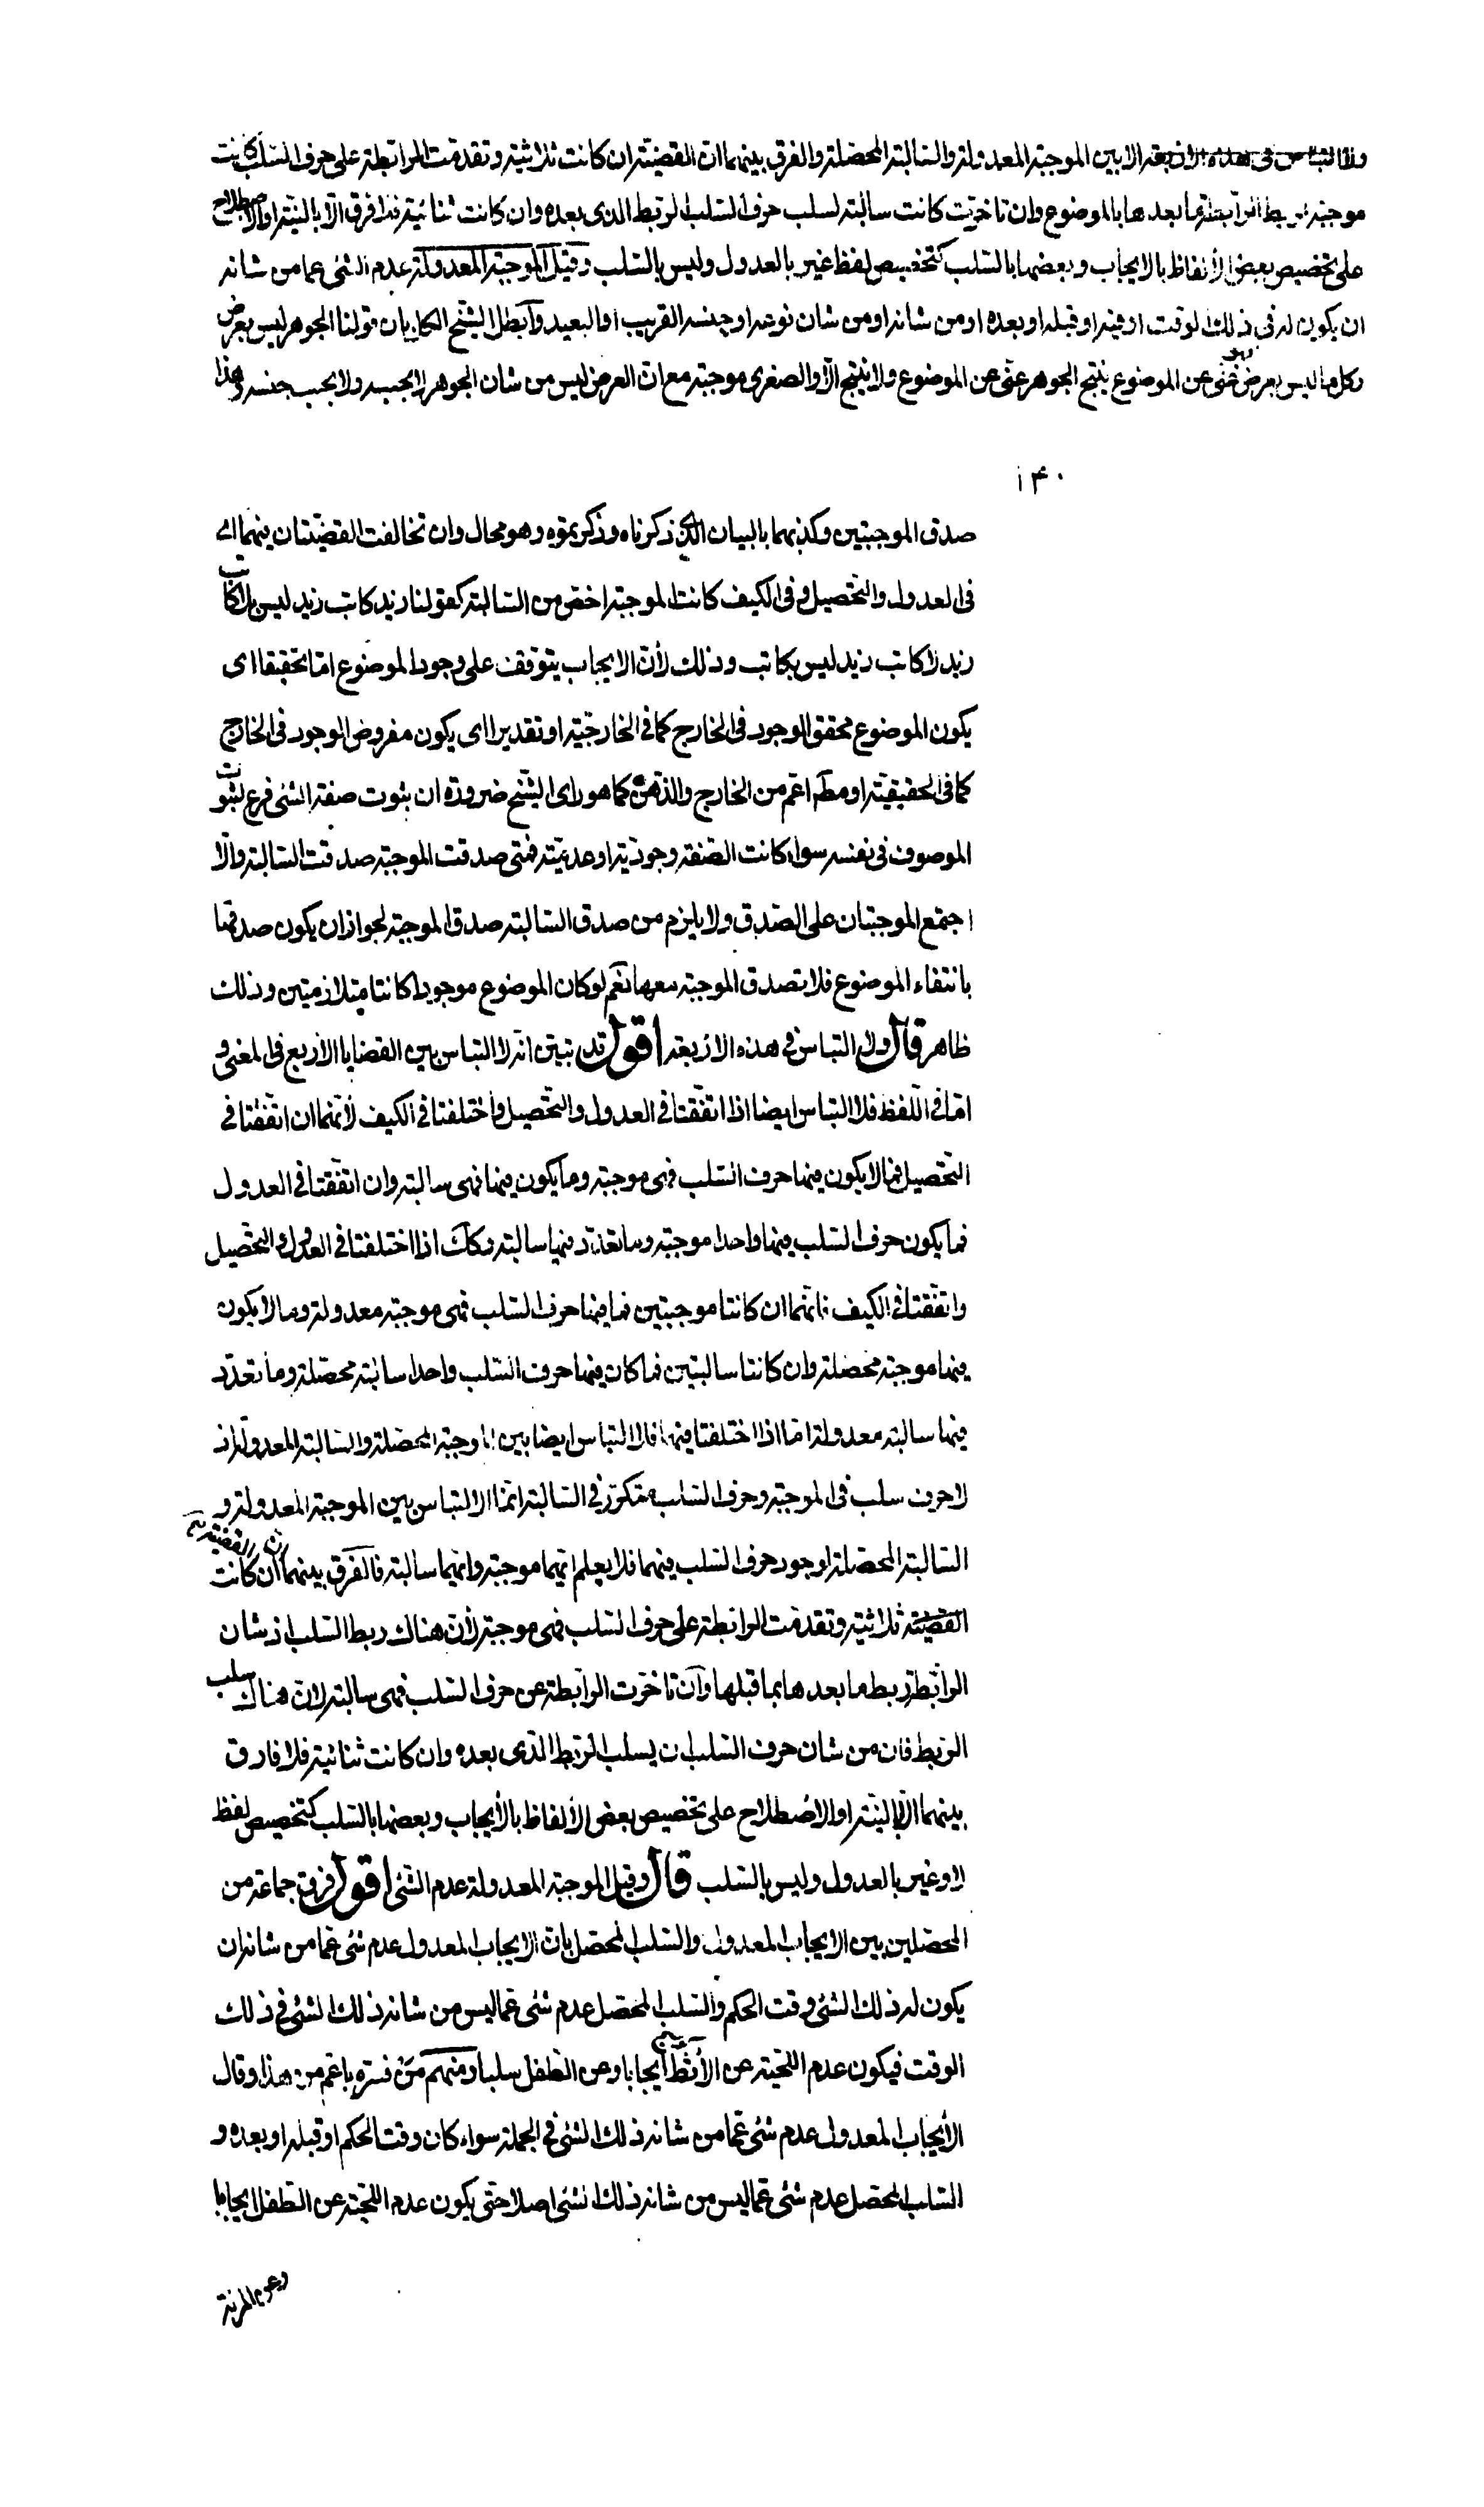 ولا التباس فى هذه الاربعة الا بين الموجبة المعدولة والسالبة المحصلة والفرق بينهما ان القضية ان كانت ثلاثية وتقدمت الرابطة على حرف السلب كانت
موجبة لربط الرابطة ما بعدها بالموضوع وان تأخرت كانت سالبة لسلب حرف السلب الربط الذى بعده وان كانت ثنائية فلا فرق الا بالنية او الاصطلاح
على تخصيص بعض الألفاظ بالايجاب وبعضها بالسلب كتخصيص لفظ غير بالعدول وليس بالسلب وقيل الموجبة المعدولة عدم الشئ عما من شانه
ان يكون له فى ذلك الوقت او فيه او قبله او بعده او من شانه او من شان نوعه او جنسه القريب او البعيد وابطل الشيخ الكل بان قولنا الجوهر ليس بعرض
وكل ما ليس بعرض فهو غنى عن الموضوع ينتج الجوهر غنى عن الموضوع ولا ينتج الا والصغرى موجبة مع ان العرض ليس من شان الجوهر لا بحسبه ولا بحسب جنسه وهذا
١٣٠
صدق الموجبتين وكذبهما بالبيان الذى ذكرناه وذكر بقوه وهو محال وان تخالفت القضيتان فيهما اى
فى العدول والتحصيل وفى الكيف كانت الموجبة اخص من السالبة كقولنا زيد كاتب زيد ليس بلا كاتب
زيد لا كاتب زيد ليس بكاتب وذلك لأن الايجاب يتوقف على وجود الموضوع اما تحقيقا اى
يكون الموضوع محقق الوجود فى الخارج كما فى الخارجية او تقديرا اى يكون مفروض الوجود فى الخارج
كما فى الحقيقية او مطم اعم من الخارج والذهن كما هو راى الشيخ ضرورة ان ثبوت صفة الشئ فرع لثبوت
الموصوف فى نفسه سواء كانت الصفة وجودية او عدمية فمتى صدقت الموجبة صدقت السالبة والا
اجتمع الموجبتان على الصدق ولا يلزم من صدق السالبة صدق الموجبة لجواز ان يكون صدقها
بانتفاء الموضوع فلا تصدق الموجبة معها نعم لو كان الموضوع موجودا كانتا متلازمتين وذلك
ظاهر قال ولا التباس فى هذه الاربعة اقول قد تبين انه لا التباس بين القضايا الأربع فى المعنى و
اما فى اللفظ فلا التباس ايضا اذا اتفقتا فى العدول والتحصيل واختلفتا فى الكيف لأنهما ان اتفقتا فى
التحصيل فما لا يكون فيها حرف السلب فهى موجبة وما يكون فيها فهى سالبة وان اتفقتا فى العدول
فما يكون حرف السلب فيها واحدا موجبة وما تعدد فيها سالبة وكك اذا اختلفتا فى العدول والتحصيل
واتفقتا فى الكيف فانهما ان كانتا موجبتين فما فيها حرف السلب فهى موجبة معدولة وما لا يكون
فيها موجبة محصلة وان كانتا سالبتين فما كان فيها حرف السلب واحدا سالبة محصلة وما تعدد
فيها سالبة معدولة اما اذا اختلفتا فيهما فلا التباس ايضا بين الموجبة المحصلة والسالبة المعدولة اذ
لا حرف سلب فى الموجبة وحرف السلب متكرر فى السالبة انما الالتباس بين الموجبة المعدولة و
السالبة المحصلة لوجود حرف السلب فيهما فلا يعلم ايهما موجبة وايهما سالبة فالفرق بينهما ان كانت
القضية ثلاثية وتقدمت الرابطة على حرف السلب فهى موجبة لأن هناك ربط السلب اذ شان
الرابطة ربط ما بعدها بما قبلها وان تاخرت الرابطة عن حرف السلب فهى سالبة لان هناك سلب
الربط فان من شان حرف السلب ان يسلب الربط الذى بعده وان كانت ثنائية فلا فارق
بينهما الا بالنية او الاصطلاح على تخصيص بعض الألفاظ بالأيجاب وبعضها بالسلب كتخصيص لفظ
لا وغير بالعدول وليس بالسلب قال وقيل الموجبة المعدولة عدم الشئ اقول فرق جماعة من
المحصلين بين الايجاب المعدول والسلب المحصل بان الايجاب المعدول عدم شئ عما من شانه ان
يكون له ذلك الشئ وقت الحكم والسلب المحصل عدم شئ عما ليس من شانه ذلك الشئ فى ذلك
الوقت فيكون عدم اللحية عن الأثط ايجابا وعن الطفل سلبا ومنهم من فسره باعم من هذا وقال
الأيجاب المعدول عدم شئ عما من شانه ذلك الشئ فى الجملة سواء كان وقت الحكم او قبله او بعده و
السلب المحصل عدم شئ عما ليس من شانه ذلك الشئ اصلا حتى يكون عدم اللحية عن الطفل ايجابا
وعن المرئة